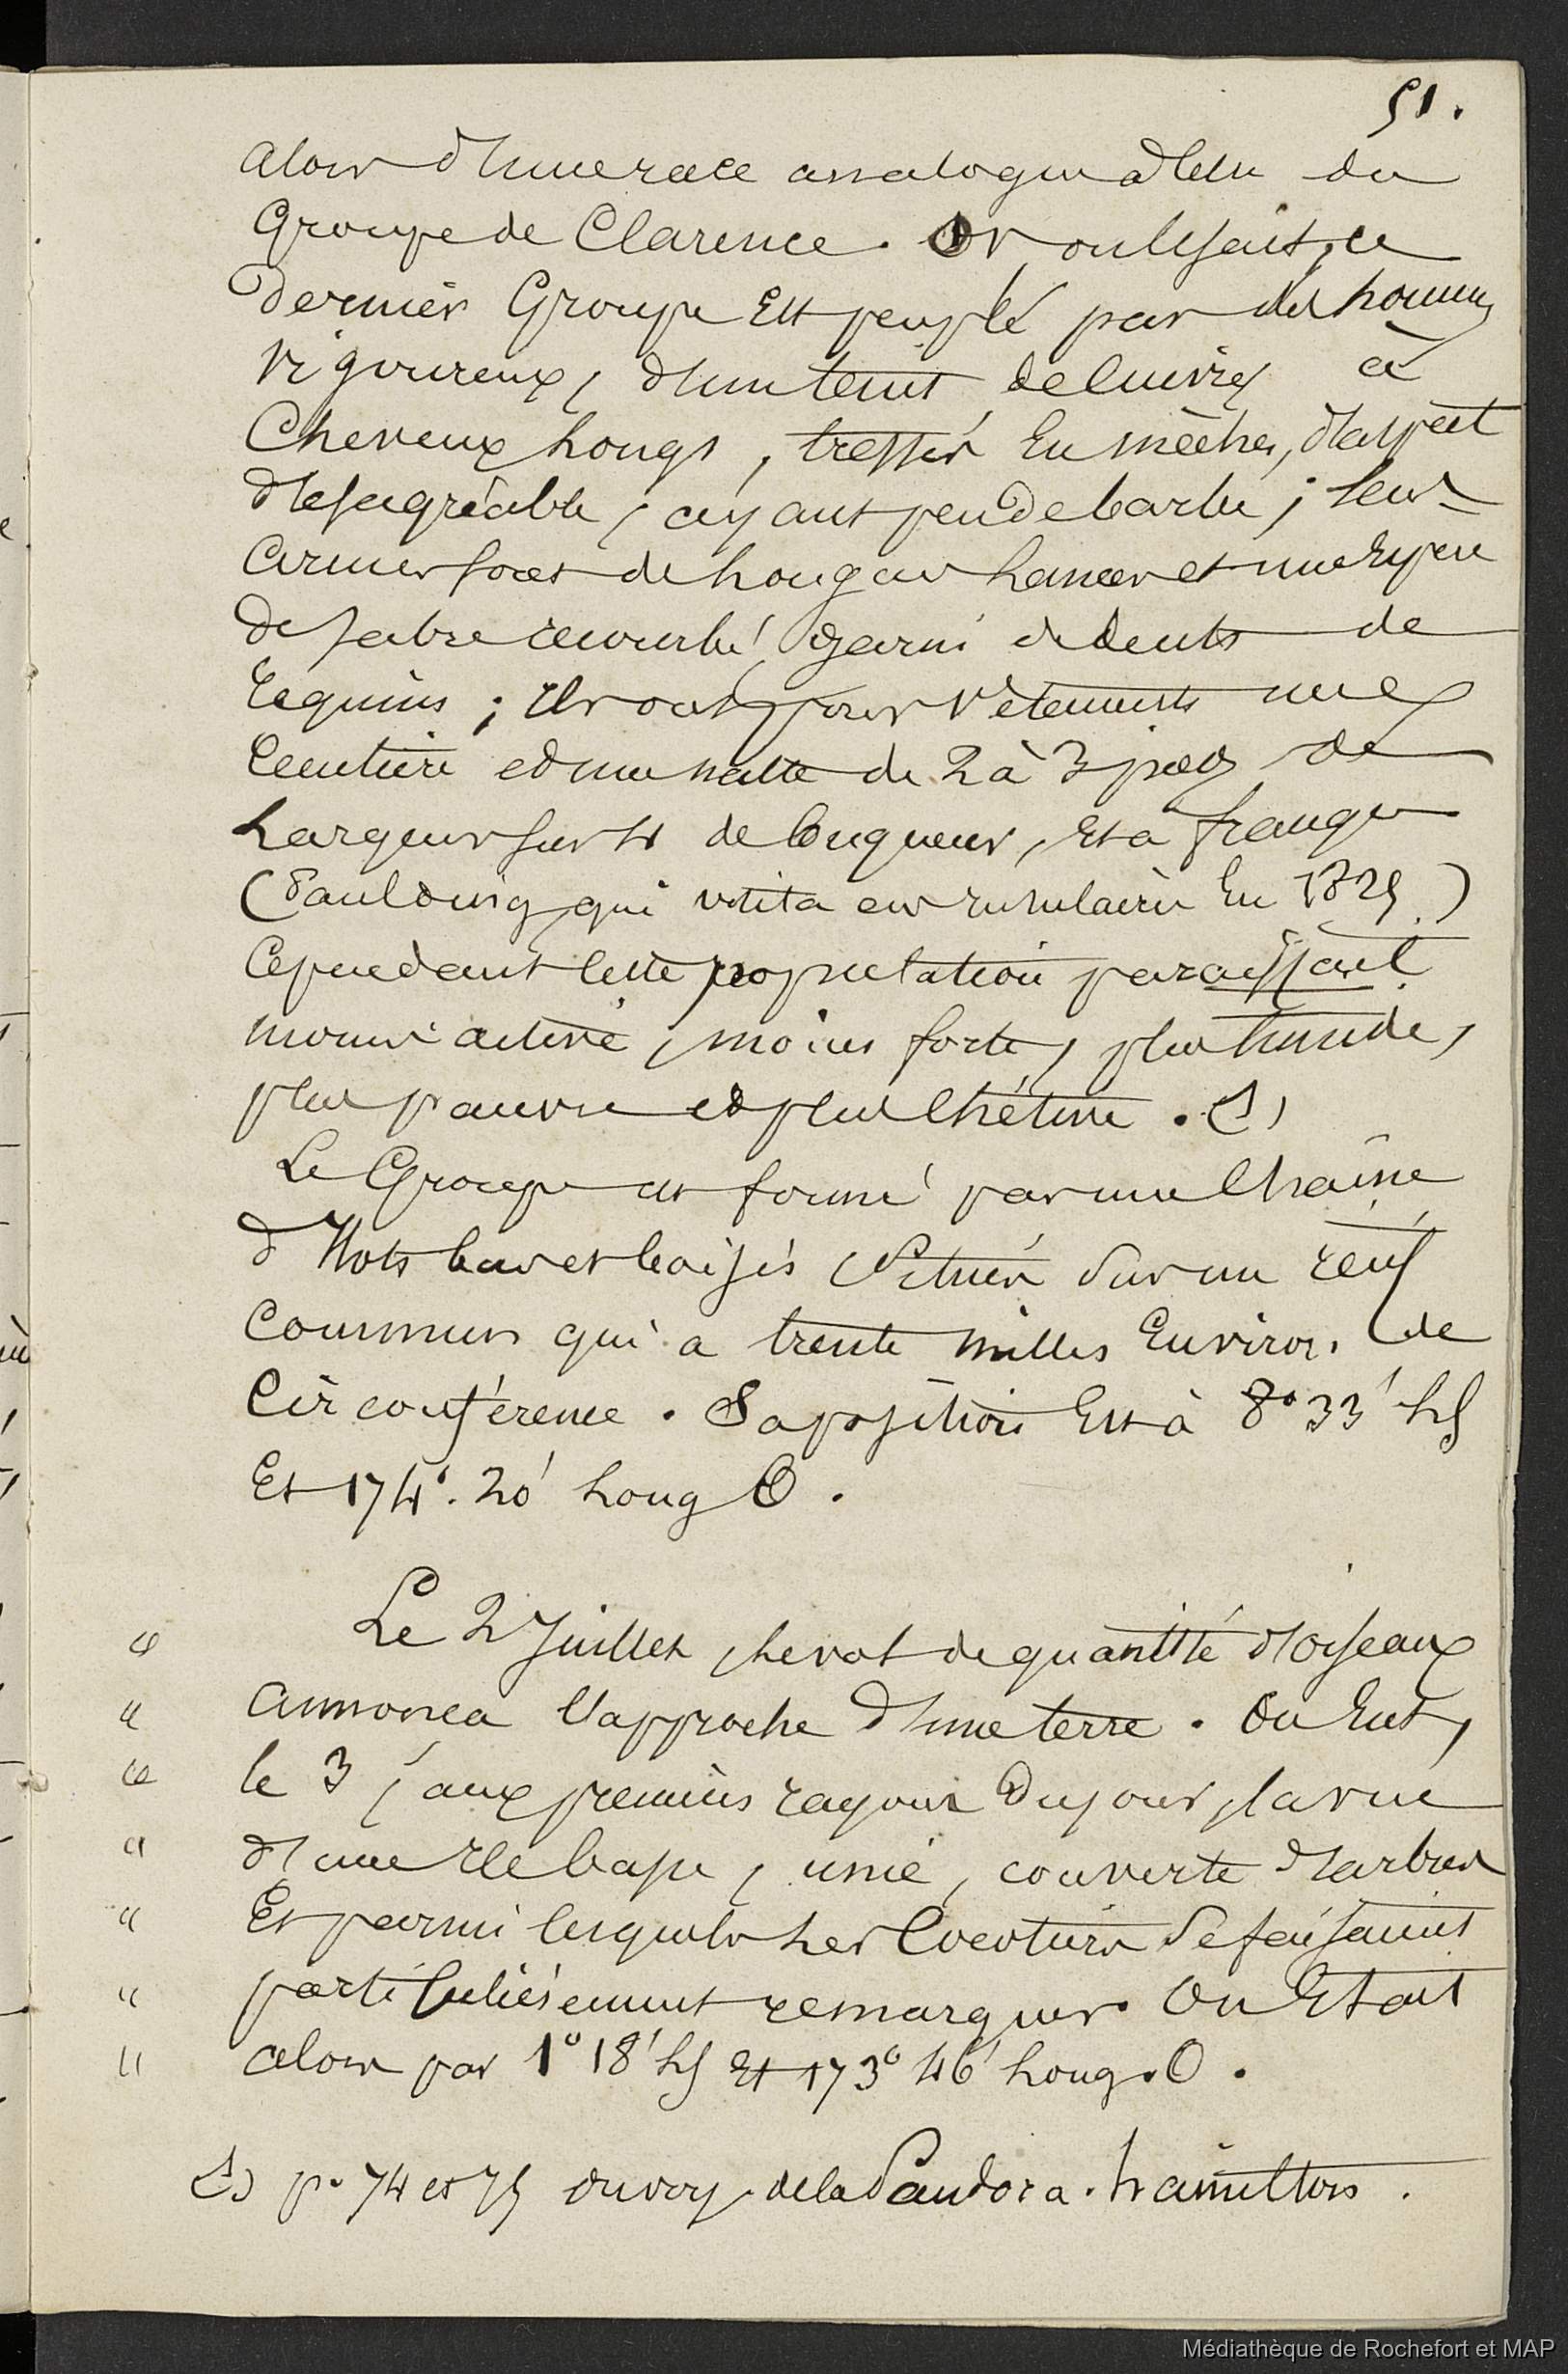 51.
alors d'une race analogue à celle du
Groupe de Clarence. Or on le sait, ce
dernier Groupe Est peuplé par des hommes
vigoureux, d'un teint de cuivre, à
Cheveux longs, tressés En mèches, d'aspect
désagréable, ayant peu de barbe; leurs
armes sont de longues lances et une Espèce
de sabre recourbé, garni de dents de
requins; Ils ont pour vêtements une
Ceinture et une natte de 2 à 3 pieds de
largeur sur 4 de longueur, et à franges
(Paulding qui visita ces insulaires En 1825.)
Cependant cette population paraissait
moins active, moins forte, plus timide,
plus pauvre et plus chétive. (1)
Le Groupe est formé par une Chaîne
d'Ilots bas et boisés situés sur un récif
Commun qui a trente milles Environ de
Circonférence. Sa position Est à 8° 33' LS
Et 174°. 20' Long O.
" Le 2 Juillet, le vol de quantité d'oiseaux
" annonça l'approche d'une terre. On Eut,
" le 3, aux premiers rayons du jour, la vue
" d'une Ile basse, unie, couverte d'arbres
" Et parmi lesquels les Cocotiers se faisaient
" particulièrement remarquer. On Etait
" alors par 1° 18' LS Et 173° 46' Long. O.
(1) p. 74 et 75 du voy. de la Pandora. Hamilton.
Médiathèque de Rochefort et MAP